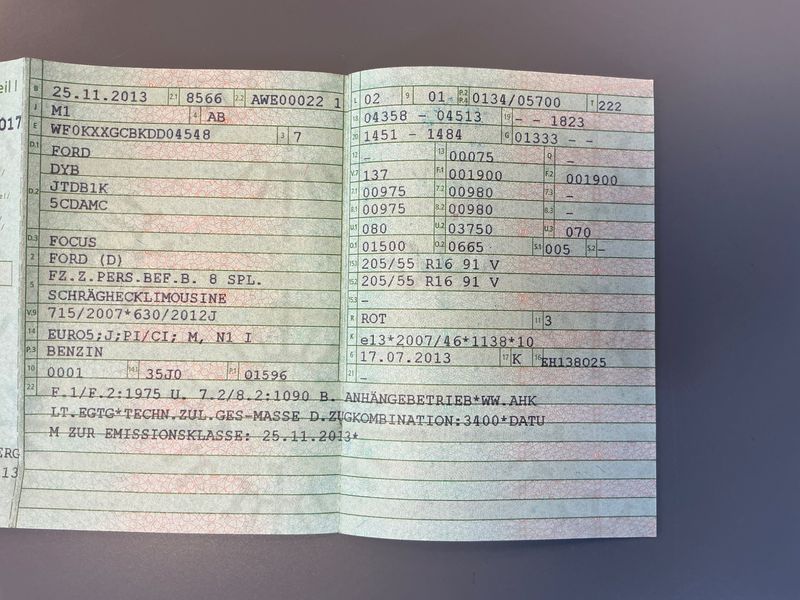 eil I
017
ERG
13
B 25.11.2013 2.1 8566 2.2 AWE00022 1
J M1 4 AB
E WF0KXXGCBKDD04548 3 7
D.1 FORD
DYB
D.2 JTDB1K
5CDAMC
D.3 FOCUS
2 FORD (D)
5 FZ.Z.PERS.BEF.B. 8 SPL.
SCHRÄGHECKLIMOUSINE
V.9 715/2007*630/2012J
14 EURO5;J;PI/CI; M, N1 I
P.3 BENZIN
10 0001 14.1 35J0 P.1 01596
L 02 9 01- P.2 P.4 0134/05700 T 222
18 04358 - 04513 19 - - 1823
20 1451 - 1484 G 01333 - -
12 - 13 00075 Q -
V.7 137 F.1 001900 F.2 001900
7.1 00975 7.2 00980 7.3 -
8.1 00975 8.2 00980 8.3 -
U.1 080 U.2 03750 U.3 070
O.1 01500 O.2 0665 S.1 005 S.2 -
15.1 205/55 R16 91 V
15.2 205/55 R16 91 V
15.3 -
R ROT 11 3
K e13*2007/46*1138*10
6 17.07.2013 17 K 16 EH138025
21 -
22 F.1/F.2:1975 U. 7.2/8.2:1090 B. ANHÄNGEBETRIEB*WW.AHK
LT.EGTG*TECHN.ZUL.GES-MASSE D.ZUGKOMBINATION:3400*DATU
M ZUR EMISSIONSKLASSE: 25.11.2013*